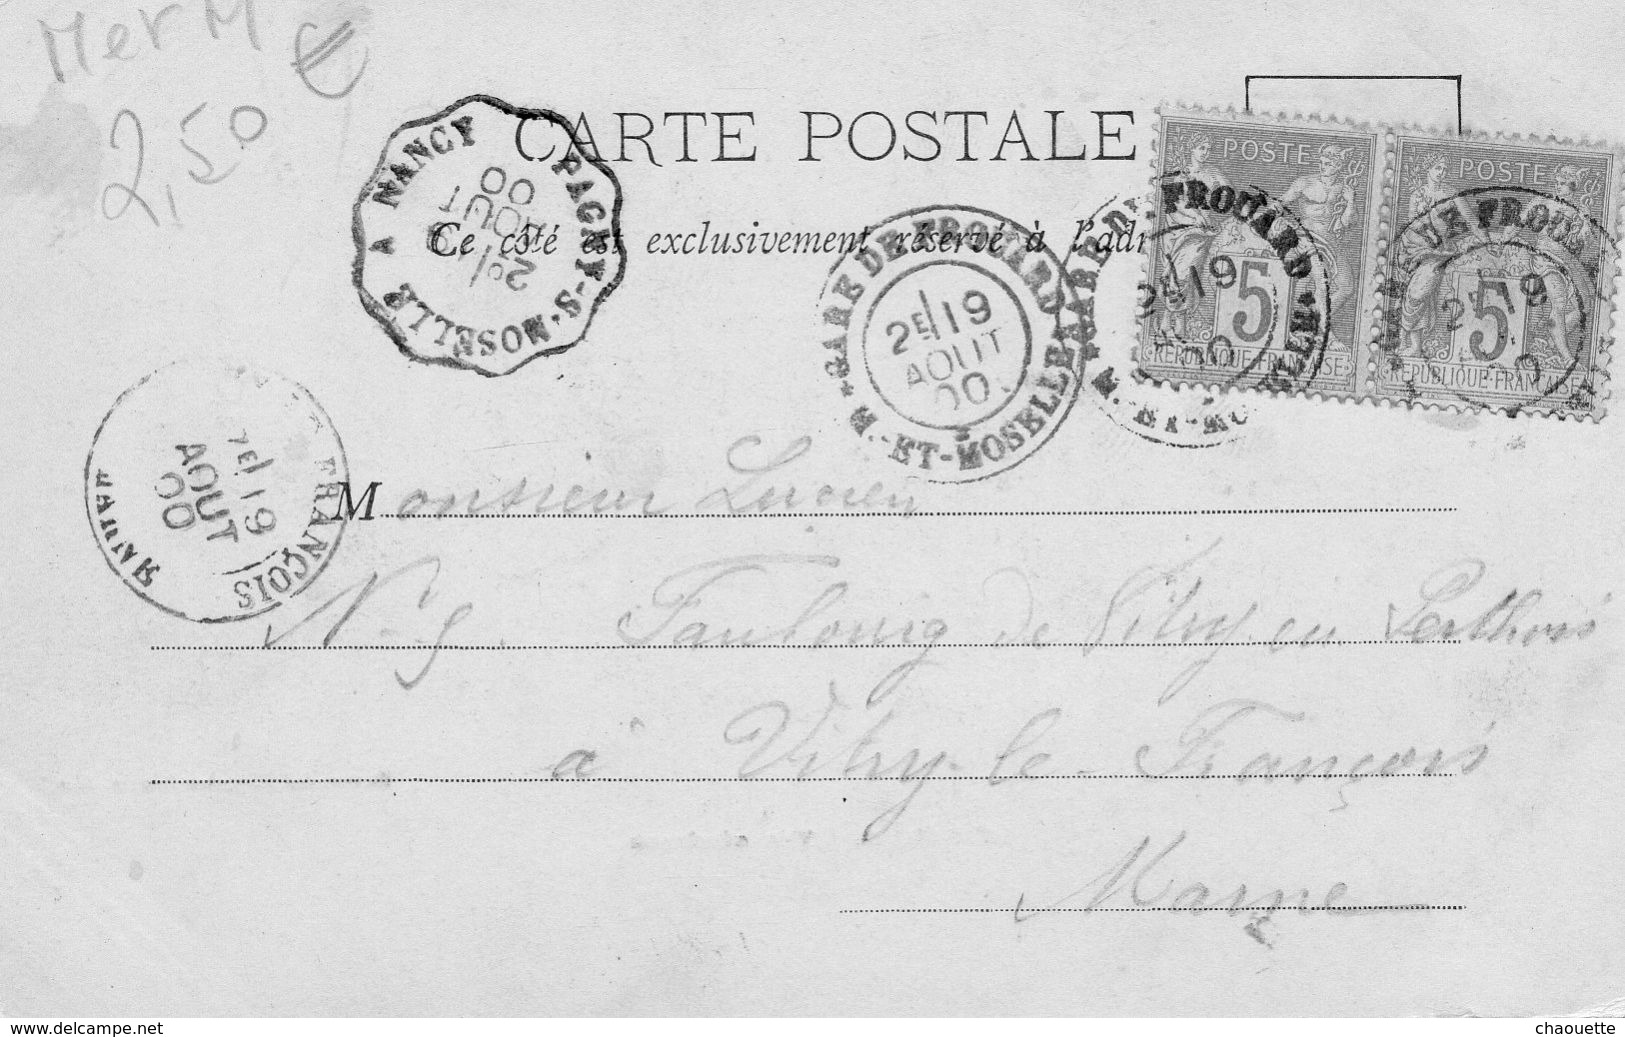 Mer M
2,50 €
CARTE POSTALE
Ce côté est exclusivement réservé à l'adr
PAGNY-S-MOSELLE A NANCY
AOUT
00
GARE DE FROUARD
2E/19
AOUT
00
M. ET-MOSELLE
POSTE
5
REPUBLIQUE-FRANÇAISE
POSTE
5
REPUBLIQUE-FRANÇAISE
FRANÇOIS
2E/19
AOUT
00
MARNE
Monsieur Lucien
N. 9. Faubourg de Vitry en Perthois
à Vitry-le-François
Marne
www.delcampe.net
chaouette